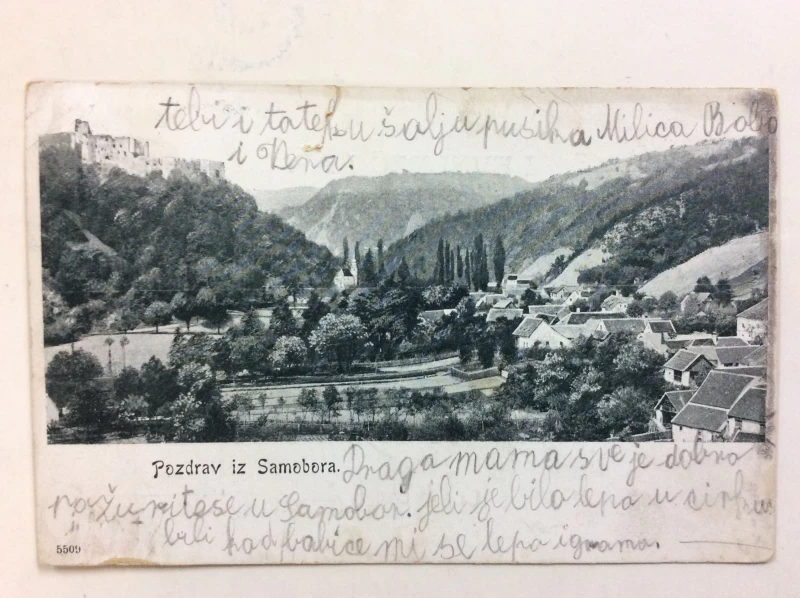 tebi i tateku šalju pusika Milica Bobo
i Vera.
Pozdrav iz Samobora.
Draga mama sve je dobro
požuritese u Samobor. jeli je bilo lepo u cirku
bili kod babice mi se lepo igramo.
5509